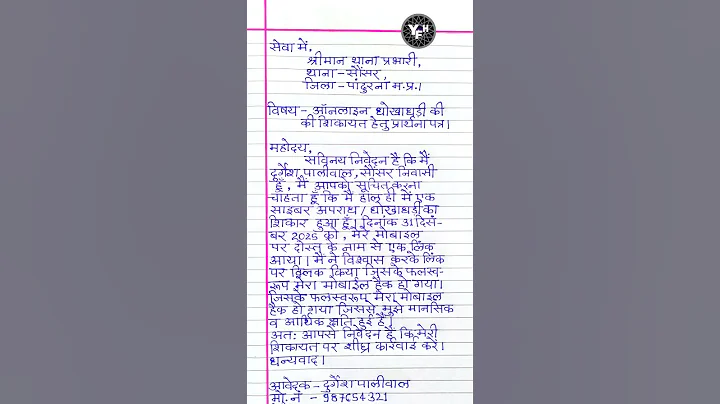 YFH
सेवा में,
श्रीमान थाना प्रभारी,
थाना - सौंसर,
जिला - पांढुरना म.प्र.।
विषय - ऑनलाइन धोखाधड़ी की
की शिकायत हेतु प्रार्थना पत्र।
महोदय,
सविनय निवेदन है कि मैं
दुर्गेश पालीवाल, सौंसर निवासी
हूँ, मैं आपको सूचित करना
चाहता हूँ कि मैं हाल ही में एक
साइबर अपराध / धोखाधड़ी का
शिकार हुआ हूँ। दिनांक 31 दिसं-
बर 2025 को, मेरे मोबाइल
पर दोस्त के नाम से एक लिंक
आया। मैं ने विश्वास करके लिंक
पर क्लिक किया जिसके फलस्व-
रूप मेरा मोबाइल हैक हो गया।
जिसके फलस्वरूप मेरा मोबाइल
हैक हो गया जिससे मुझे मानसिक
व आर्थिक क्षति हुई है।
अतः आपसे निवेदन है कि मेरी
शिकायत पर शीघ्र कार्रवाई करें।
धन्यवाद।
आवेदक - दुर्गेश पालीवाल
मो.नं - 987654321